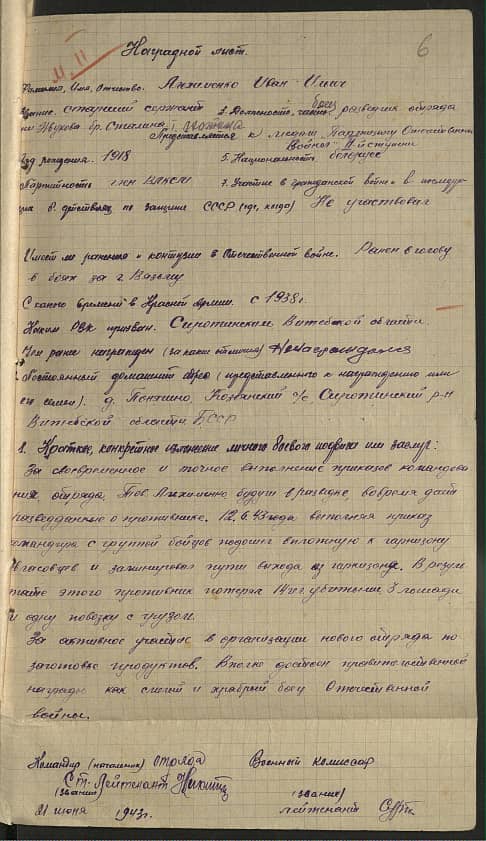 6
Наградной лист.
Фамилия, Имя, Отчество. Анжиненко Иван Ильич
Звание. старший сержант 3. Должность, часть боец разведчик отряда
бр. Сталина
Представляется к медали Партизану Отечественной
Войны II степени
Год рождения. 1918 5. Национальность белорус
Партийность член ВЛКСМ 7. Участие в гражданской войне и в последую-
щих б. действиях по защите СССР (где, когда) Не участвовал
Имеет ли ранения и контузии в Отечественной войне. Ранен в голову
в боях за г. Вязьму
С какого времени в Красной Армии. с 1938 г.
Каким РВК призван. Сиротинским Витебской области.
Чем ранее награжден (за какие отличия) Не награждался
Постоянный домашний адрес (представленного к награждению или
его семьи). д. Козьянский с/с Сиротинский р-н
Витебской области БССР
1. Краткое, конкретное изложение личного боевого подвига или заслуг:
За своевременное и точное выполнение приказов командова-
ния отряда. Тов. Анжиненко будучи в разведке, вовремя даёт
разведданные о противнике. 12.6.43 года выполняя приказ
командира с группой бойцов подошел вплотную к гарнизону
и заминировал пути выхода из гарнизона. В резуль-
тате этого противник потерял 14 чел. убитыми, 3 лошади
и одну повозку с грузом.
За активное участие в организации нового отряда по
заготовке продуктов. Вполне достоин правительственной
награды как смелый и храбрый боец Отечественной
войны.
Командир (начальник) отряда Военный комиссар
Ст. Лейтенант
(звание) (звание)
21 июня 1943 г. лейтенант